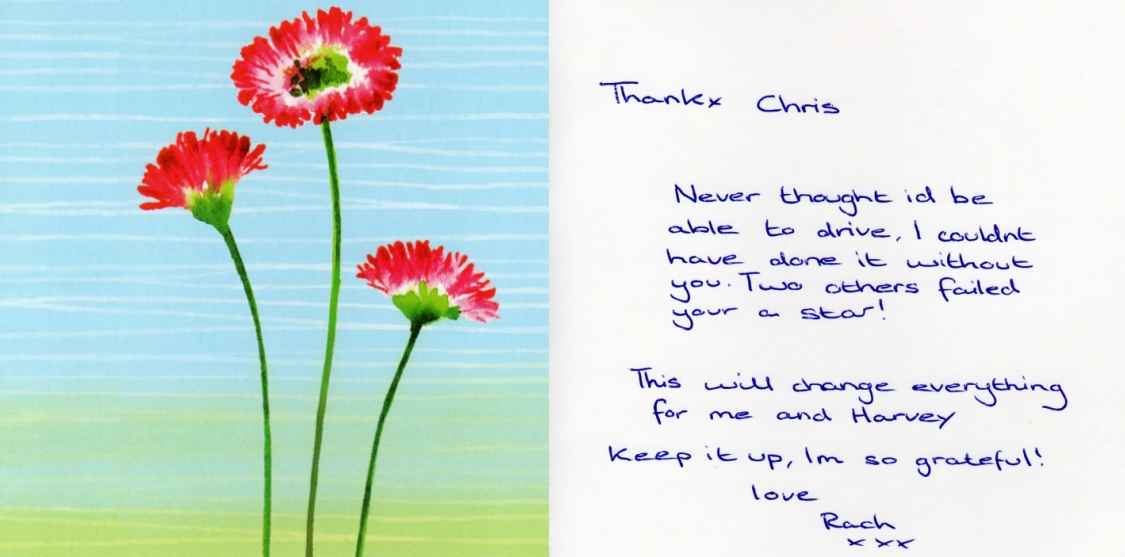 Thankx Chris
Never thought id be
able to drive, I couldnt
have done it without
you. Two others failed
your a star!
This will change everything
for me and Harvey
Keep it up, Im so grateful!
love
Rach
x x x